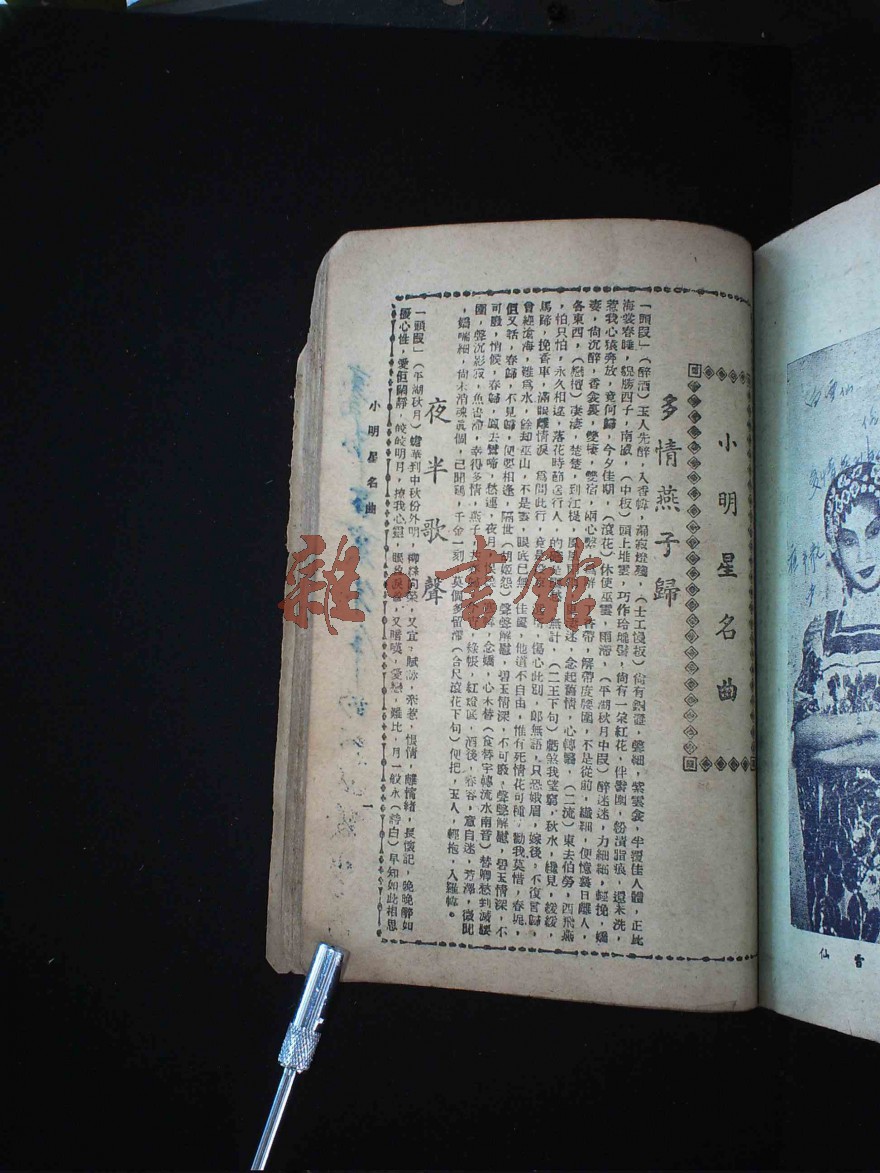 小明星名曲
多情燕子歸
「頭段」（醉酒）玉人先醉，入香幃，漏寂燈殘，（士工慢板）尙有銀箏，聲細，紫雲衾，半覆佳人體，正比
海棠春睡，貌勝西子，南威，（中板）頭上堆雲，巧作玲瓏髻，尙有一朵紅花，伴鬢圍，粉漬脂痕，還未洗，
惹我心猿奔放，竟何歸，今夕佳期，（滾花）休使巫雲，雨滯，（平湖秋月中段）醉迷迷，力細細，輕挽，嬌
妻，尙沉醉，香衾裏，雙棲，雙宿，兩心繫，解帶度腰圍，不是從前，纖細，便憶曩日離人，
各東西，（戀檀）凄凄，楚楚，到江堤，念起舊情，心轉翳，（二流）東去伯勞，西飛燕
，怕只怕，永久相違，落花時節送行人，無計，（二王下句）虧煞我望窮，秋水，纔見，緩緩，
馬蹄，挽香車，滿眼離情淚，爲問此行，傷心此別，郎無語，只恐娥眉，嫁後，不復言歸，
曾經滄海，難爲水，除却巫山，不是雲，眼底已無，佳麗，他還不自由，惟有死情花可種，勸我莫惜，春坭，
但又話，春歸，不見歸，便要相逢，隔世（胡姬怨）聲聲解慰，碧玉情深，不可廢，聲聲解慰，碧玉情深，不
可廢，悄候，春歸，鳳去鸞啼，愁連，夜月，念嬌，心木替（食替字轉流水南音）替卿愁到減腰
圍，聲沉影寂，魚書滯，幸得多情，燕子，綠帳，紅燈底，酒後，春容，意自迷，芳澤，微聞
，嬌喘細，尙未消魂眞個，已聞鷄，千金一刻，莫個多留滯（合尺滾花下句）便把，玉人，輕抱，入羅幃。
夜半歌聲
「頭段」（平湖秋月）蟾華到中秋份外明，又宜，賦詠，惹，恨情，離情緒，長懷記，晚晚醉如
擾心性，愛佢關靜，皎皎明月，撩我心靈，又嗟嘆，愛戀，難比，月一般永（詩白）早知如此相思
小明星名曲
一
雜書館
仙雪